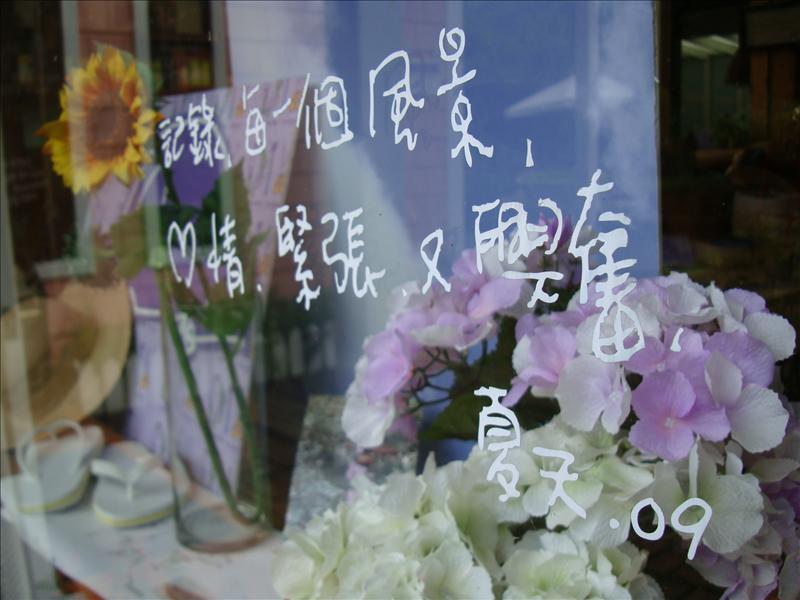 記錄,每一個風景,
♡情.緊張.又興奮.
夏天.09